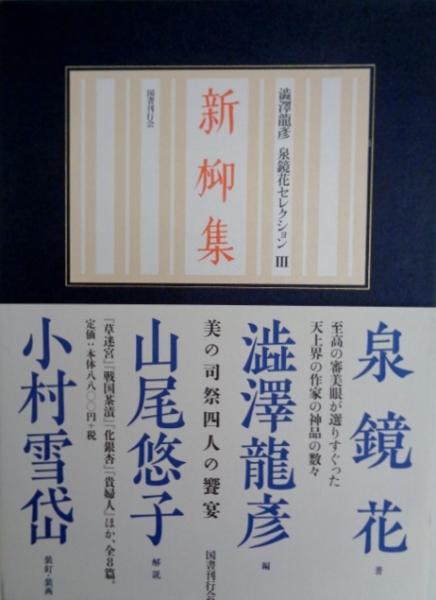 澁澤龍彦 泉鏡花セレクション III
新柳集
国書刊行会
泉鏡花 著
至高の審美眼が選りすぐった
天上界の作家の神品の数々
澁澤龍彦 編
美の司祭四人の饗宴
国書刊行会
山尾悠子 解説
『草迷宮』『戦国茶漬』『化銀杏』『貴婦人』ほか、全8篇。
定価:本体八八〇〇円+税
小村雪岱 装釘・装画